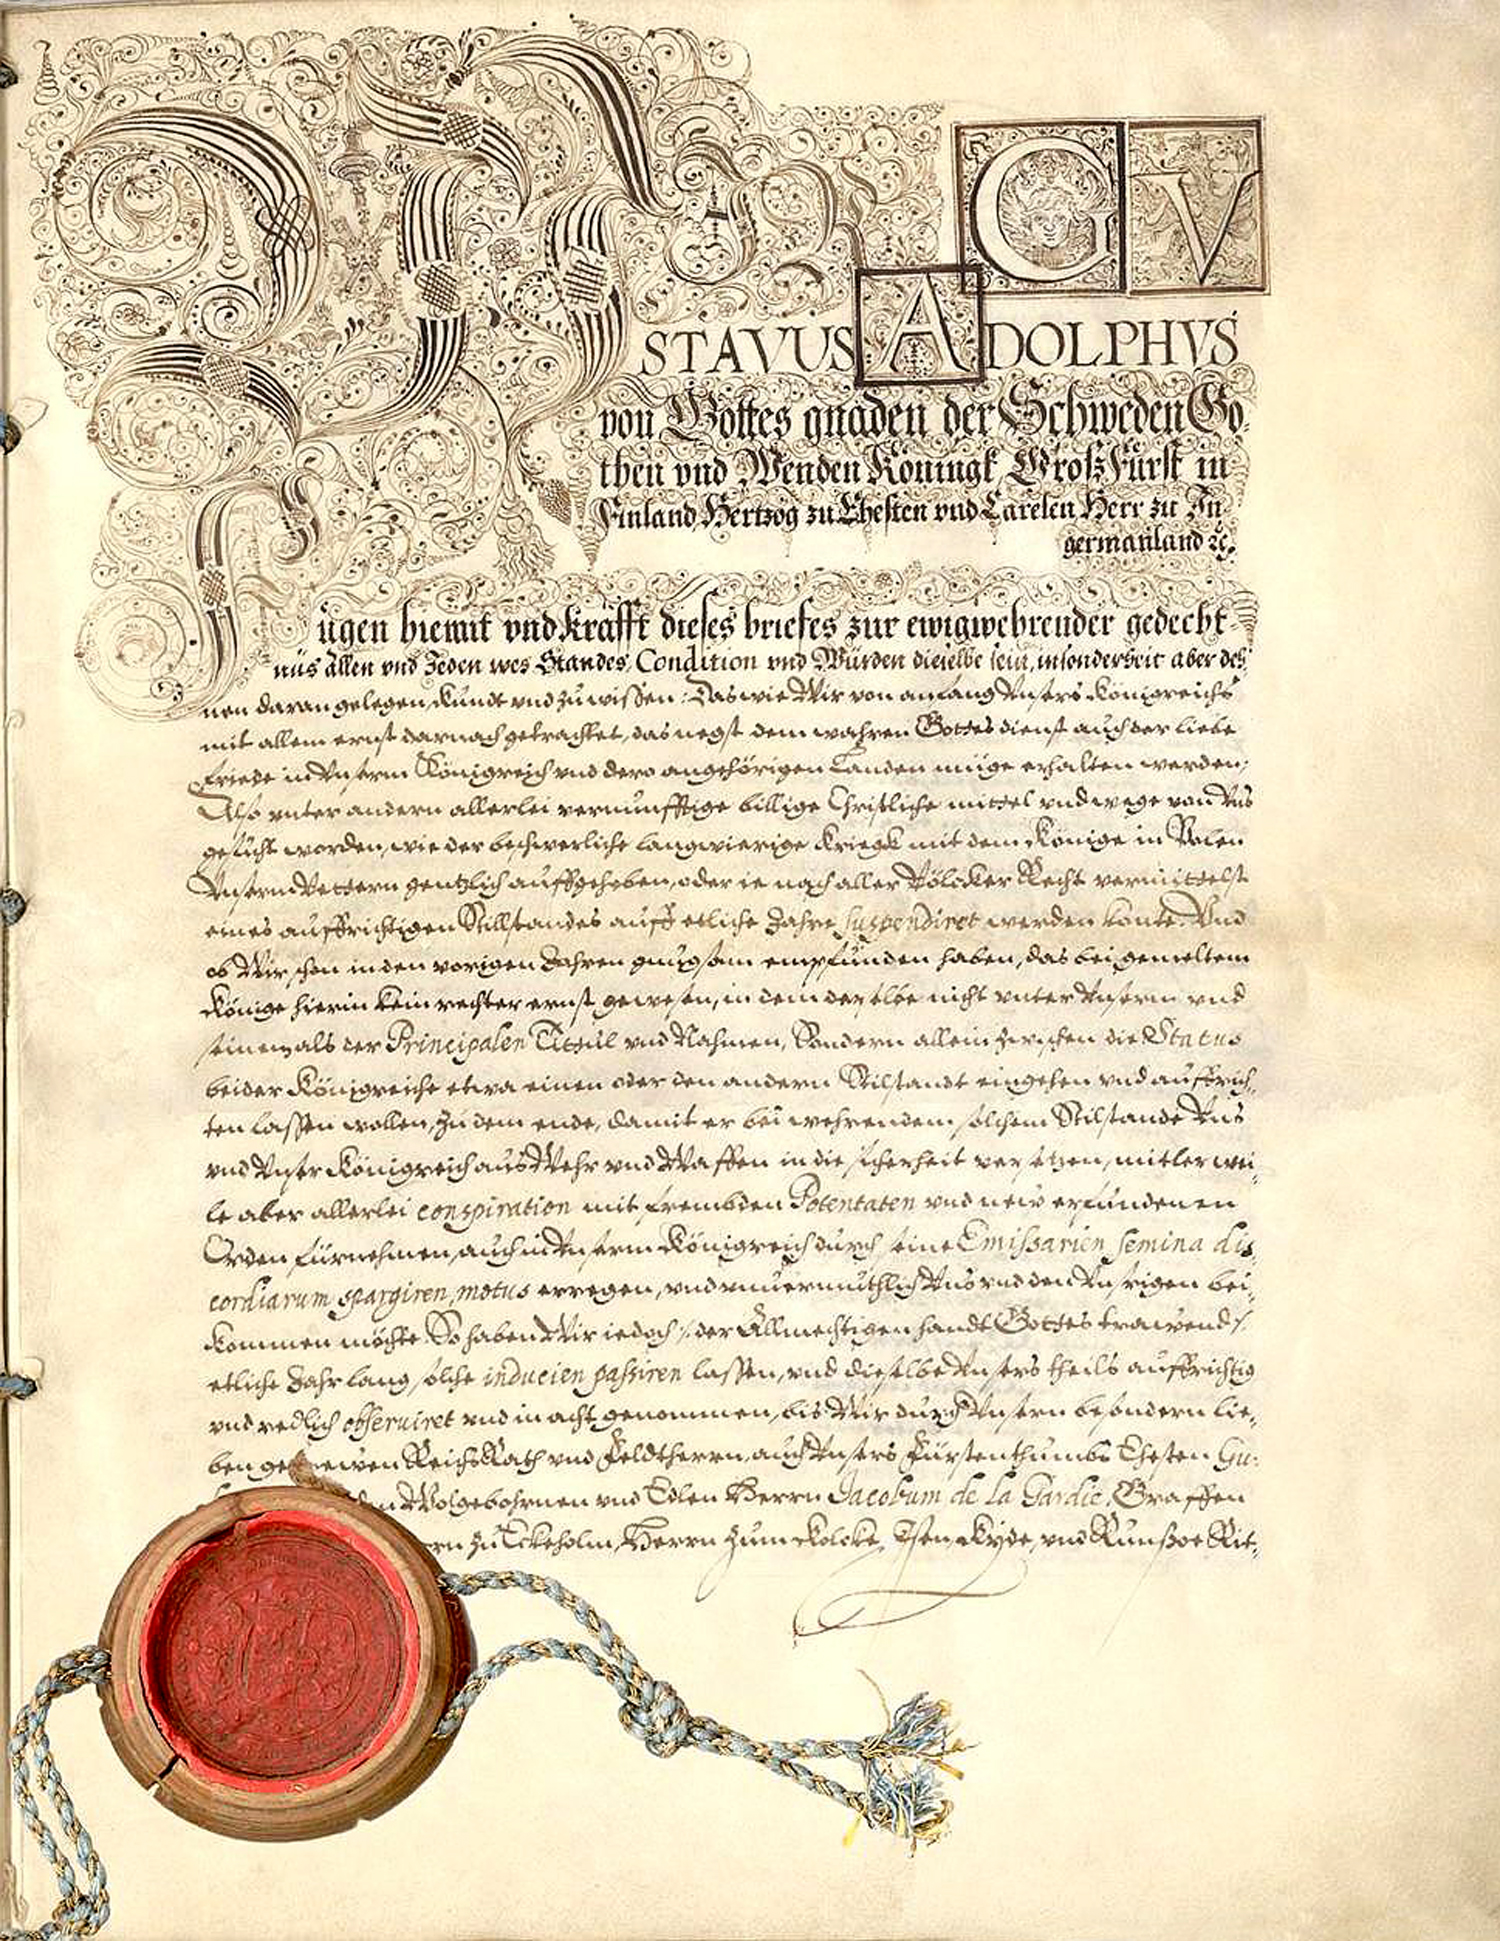 Wir GV
STAVUS ADOLPHVS
von Gottes gnaden der Schweden Go,
then vnd Wenden Köningk, GrosFürst in
Finland, Hertzog zu Ehesten vnd Carelen Herr zu In,
germanland ꝛc.
Fügen hiemit vnd krafft dieses briefes zur ewigwehrender gedecht-
nüs allen vnd Jeden wes Standes, Condition vnd Würden dieselbe sein, insonderheit aber deh,
nen daran gelegen, kundt vnd zu wissen: Das wie Wir von anfang Vnsers Königreichs
mit allem ernst darnach getrachtet, das negst dem wahren Gottesdienst auch der liebe
friede in Vnserm Königreich vnd dero angehörigen Landen müge erhalten werden;
Also vnter andern allerlei vernunfftige billige Christliche mittel vnd wege von Vns
gesucht worden, wie der beschwerliche langwierige Kriegk mit dem Könige in Polen
Vnserm Vettern gentzlich auffgehoben, oder ie nach aller Völcker Recht vermittelst
eines auffrichtigen Stillstandes auff etliche Jahre suspendiret werden konte. Vnd
ob Wir schon in den vorigen Jahren gnugsam empfunden haben, das bei gemeltem
Könige hierin kein rechter ernst gewesen, in dem derselbe nicht vnter Vnserm vnd
seinem als der Principalen Titul vnd Nahmen, Sondern allein zwischen die Status
beider Königreiche etwa einen oder den andern Stilstandt eingehen vnd auffrich,
ten lassen wollen, zu dem ende, damit er bei wehrendem solchem Stilstande Vns
vnd Vnser Königreich aus Wehr vnd Waffen in die sicherheit versetzen, mitlerwei,
le aber allerlei conspiration mit frembden Potentaten vnd new erfundenen
Orden fürnehmen, auch in Vnserm Königreich durch seine Emissarien semina dis,
cordiarum spargiren, motus erregen, vnd vnuermuthlich Vns vnd den Vnsrigen bei,
kommen möchte. So haben Wir iedoch /: der Allmechtigen handt Gottes trawend :/
etliche Jahr lang, solche inducien passiren lassen, vnd dieselbe Vnsers theils auffrichtig
vnd redlich obseruiret vnd in acht genommen, bis Wir durch Vnsern besondern lie,
ben getrewen ReichsRath vnd Feldtherrn, auch Vnsers Fürstenthumbs Ehesten Gu,
den Wolgebohrnen vnd Edlen Herrn Jacobum de la Gardie, Graffen
zu Eckeholm, Herrn zum Kolcke, Kyde, vnd Runsoe Rit,